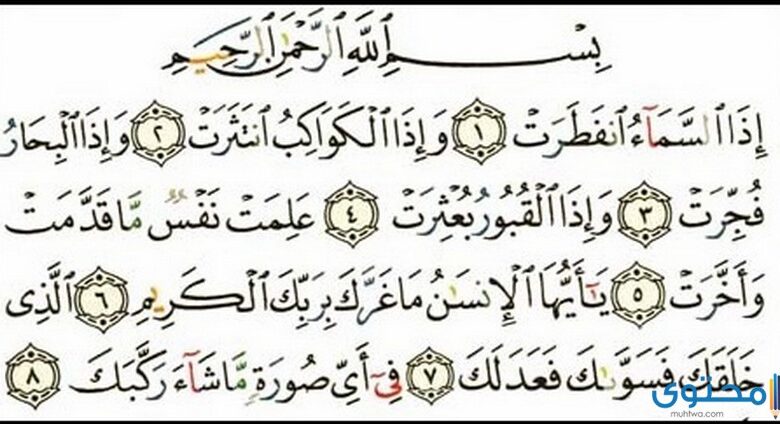 بِسْمِ ٱللَّهِ ٱلرَّحْمَٰنِ ٱلرَّحِيمِ
إِذَا ٱلسَّمَآءُ ٱنفَطَرَتْ ١ وَإِذَا ٱلْكَوَاكِبُ ٱنتَثَرَتْ ٢ وَإِذَا ٱلْبِحَارُ
فُجِّرَتْ ٣ وَإِذَا ٱلْقُبُورُ بُعْثِرَتْ ٤ عَلِمَتْ نَفْسٌ مَّا قَدَّمَتْ
وَأَخَّرَتْ ٥ يَٰٓأَيُّهَا ٱلْإِنسَٰنُ مَا غَرَّكَ بِرَبِّكَ ٱلْكَرِيمِ ٦ ٱلَّذِى
خَلَقَكَ فَسَوَّىٰكَ فَعَدَلَكَ ٧ فِىٓ أَىِّ صُورَةٍ مَّا شَآءَ رَكَّبَكَ ٨
محتوى
muhtwa.com